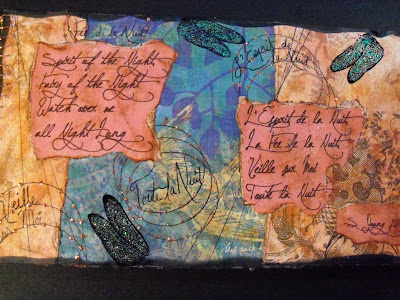 Fée de la Nuit
Spirit of the Night
Fairy of the Night
Watch over me
all Night Long
L'Esprit de
la Nuit
L'Esprit de la Nuit
La Fée de la Nuit
Veille sur Moi
Toute la Nuit
Toute la Nuit
Veille
sur Moi